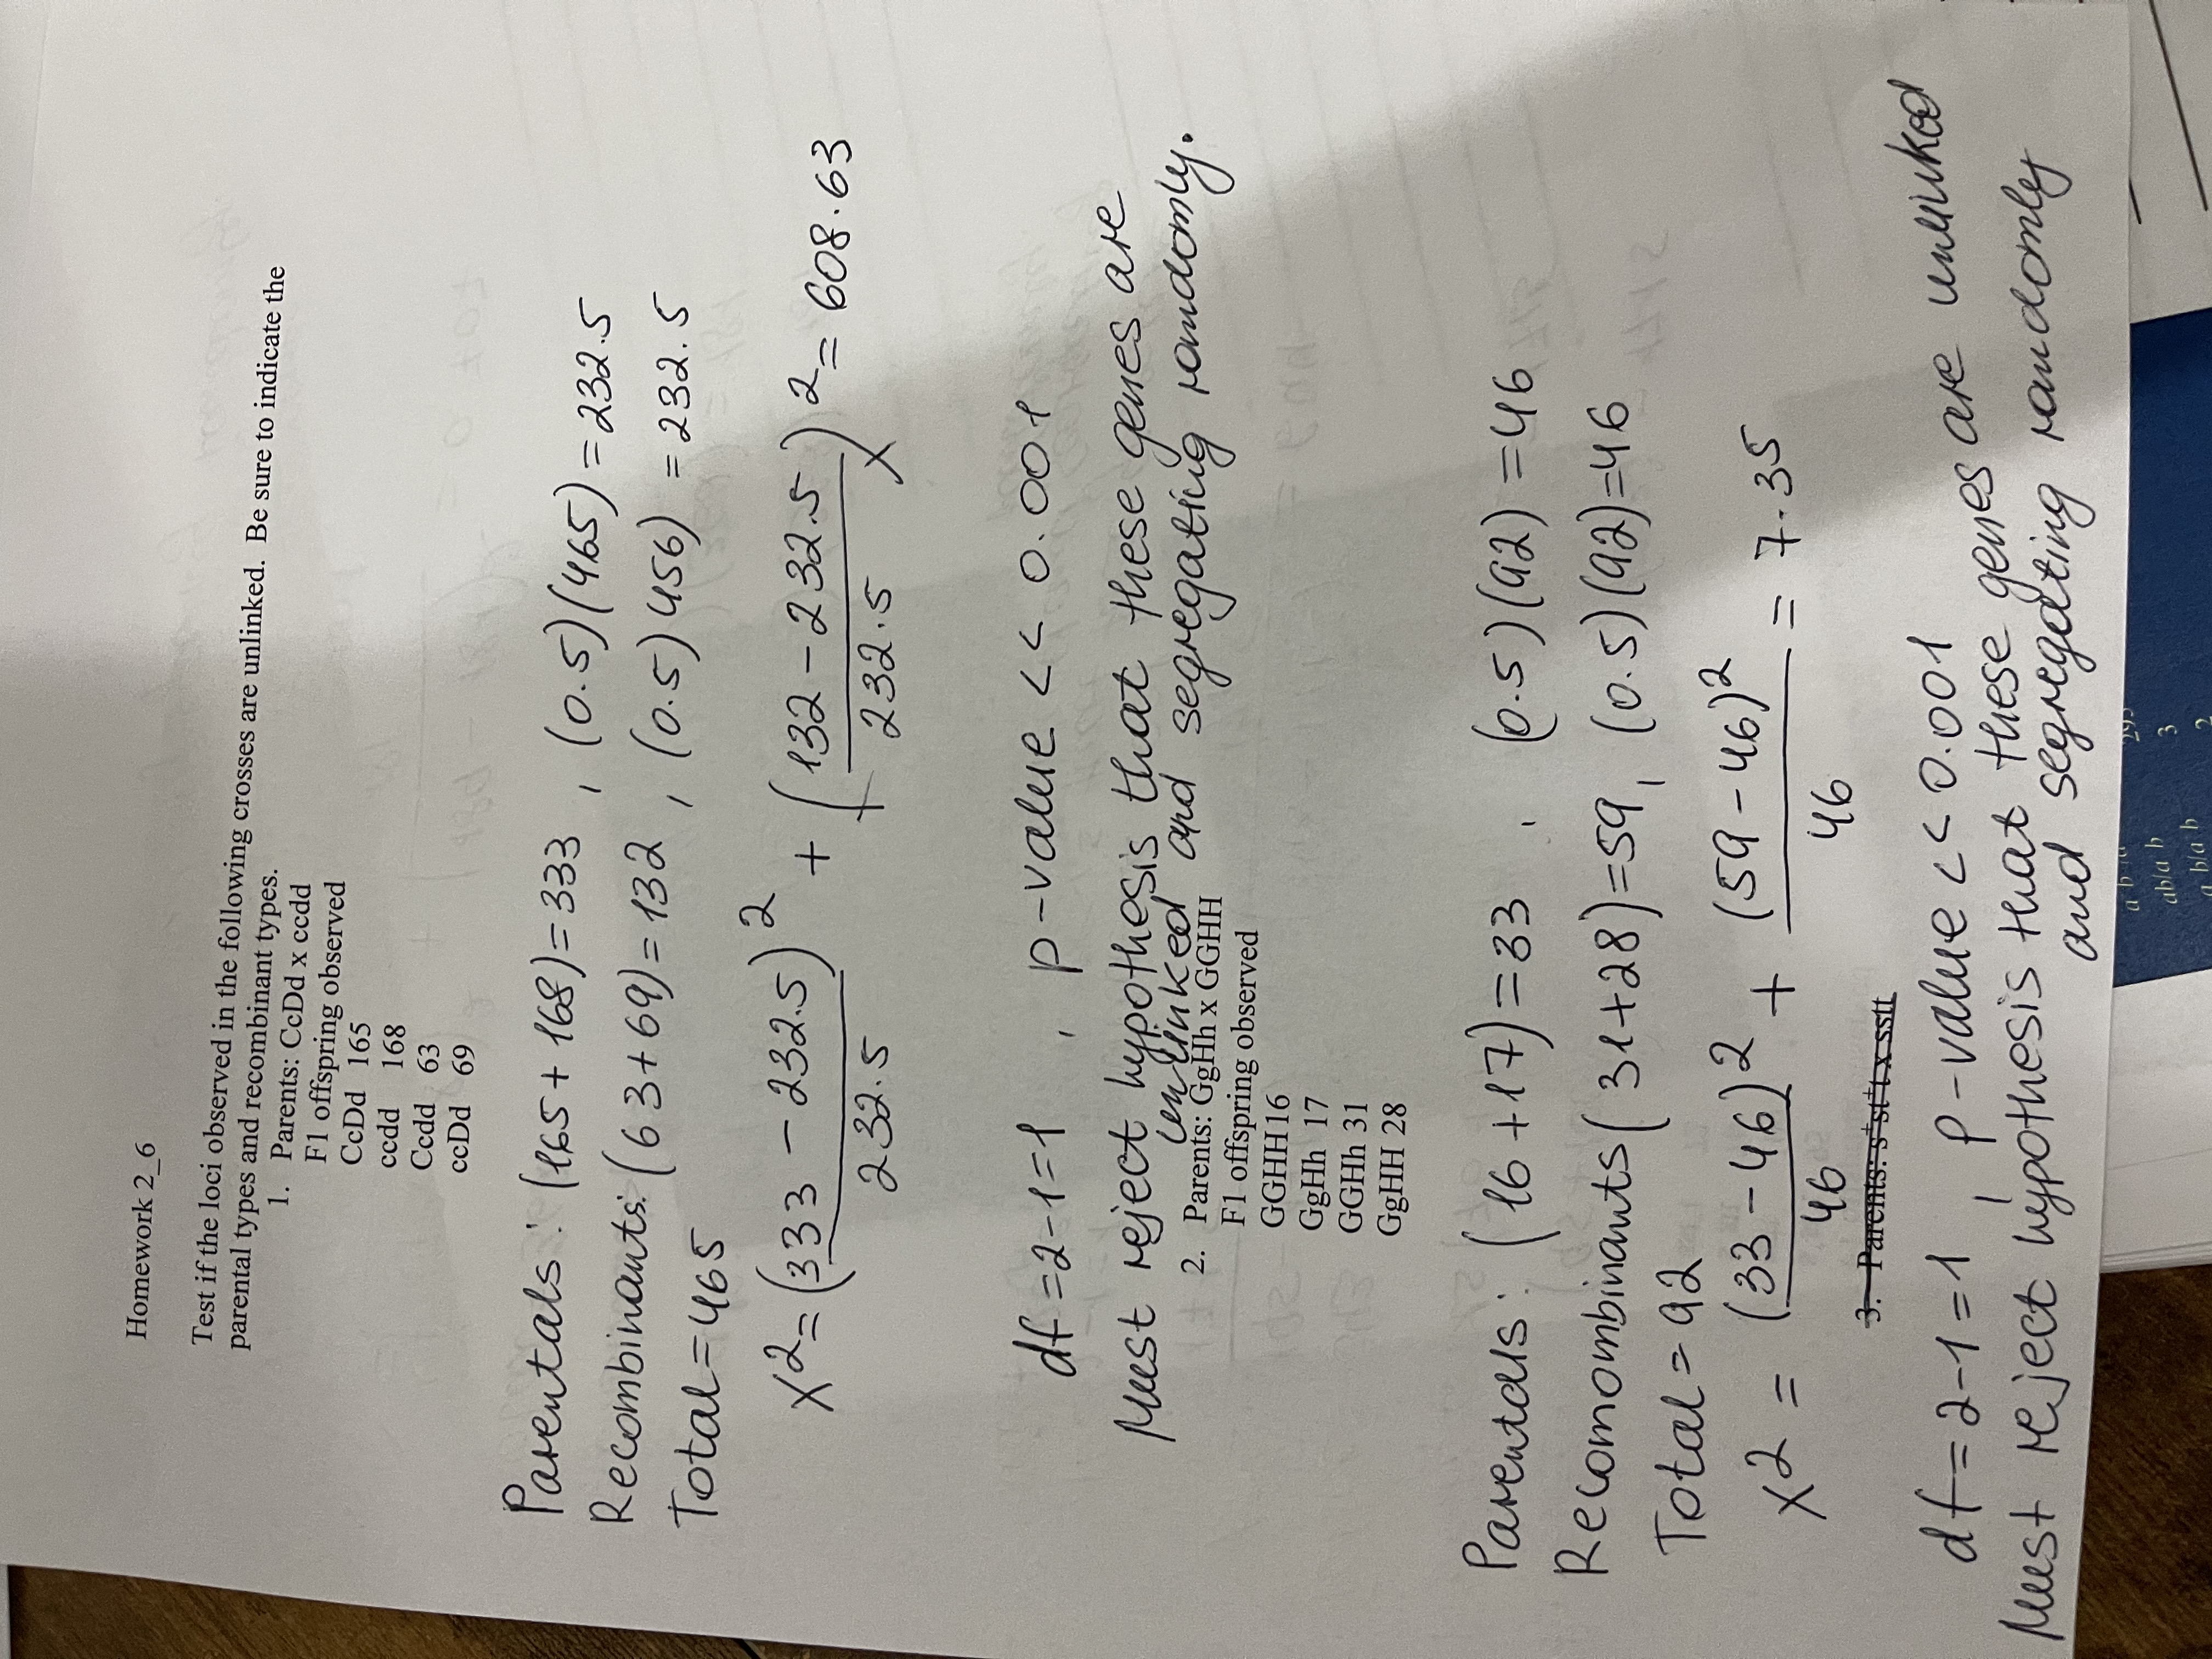 Homework 2_6
Test if the loci observed in the following crosses are unlinked. Be sure to indicate the
parental types and recombinant types.
1. Parents: CcDd x ccdd
F1 offspring observed
CcDd 165
ccdd 168
Ccdd 63
ccDd 69
Parentals: (165 + 168) = 333 , (0.5)(465) = 232.5
Recombinants: (63 + 69) = 132 , (0.5) 456) = 232.5
Total = 465
X2 = (333 - 232.5)2 / 232.5 + (132 - 232.5)2 / 232.5 = 608.63
df = 2-1 = 1 , p-value << 0.001
Must reject hypothesis that these genes are
unlinked and segregating randomly.
2. Parents: GgHh x GGHH
F1 offspring observed
GGHH 16
GgHh 17
GGHh 31
GgHH 28
Parentals: (16 + 17) = 33 , (0.5)(92) = 46
Recomombinants (31+28) = 59, (0.5)(92) = 46
Total = 92
X2 = (33 - 46)2 / 46 + (59 - 46)2 / 46 = 7.35
3. Parents: s+s t+t x sstt
df = 2-1 = 1 , p-value << 0.001
Must reject hypothesis that these genes are unlinked
and segregating randomly
ab/a b
3